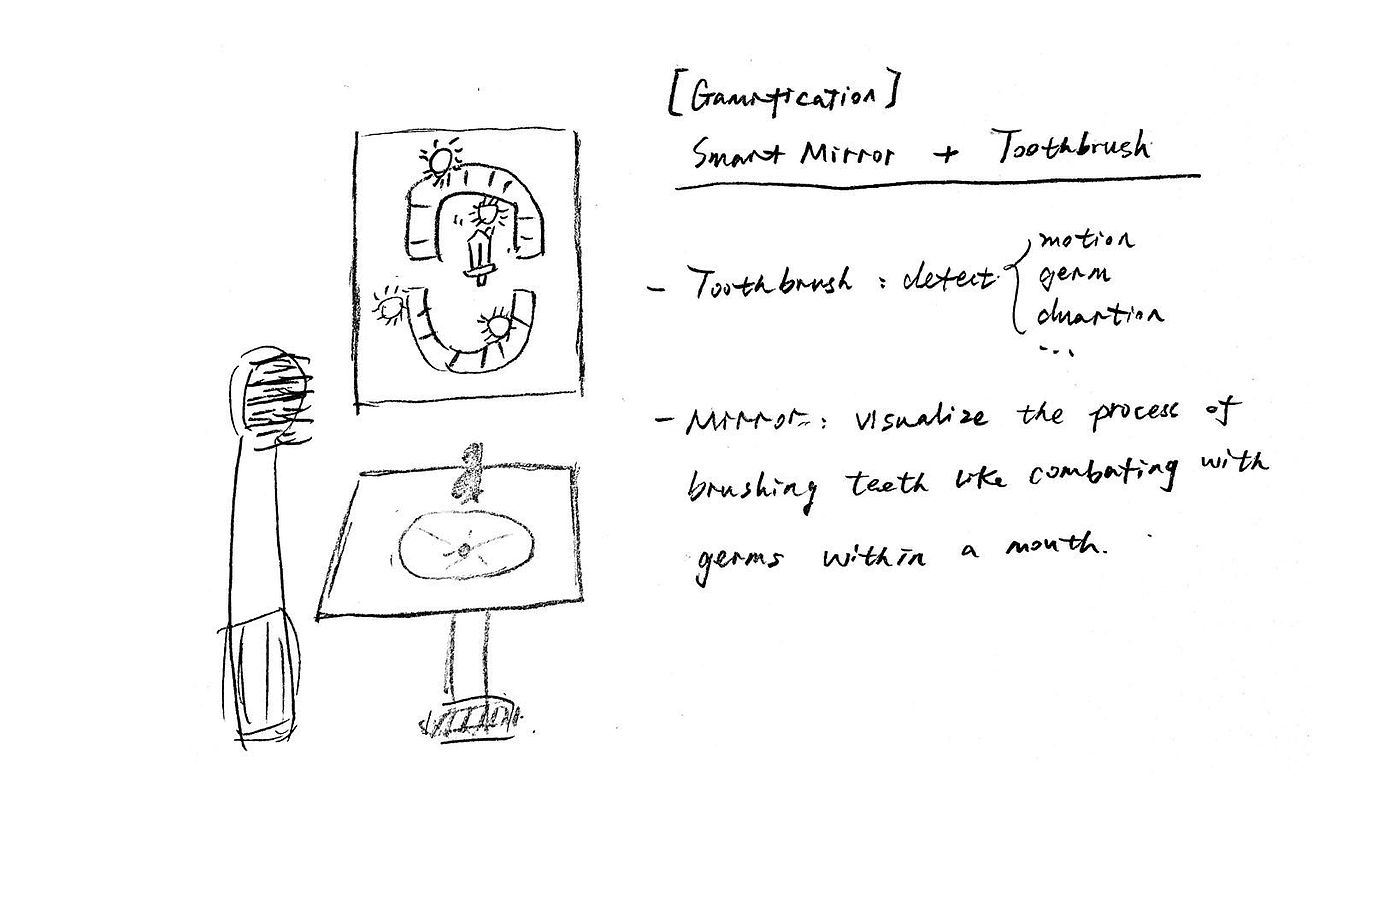 [Gamification]
Smart Mirror + Toothbrush
- Toothbrush : detect { motion
germ
duartion
...
- Mirror : visualize the process of
brushing teeth like combating with
germs within a mouth.